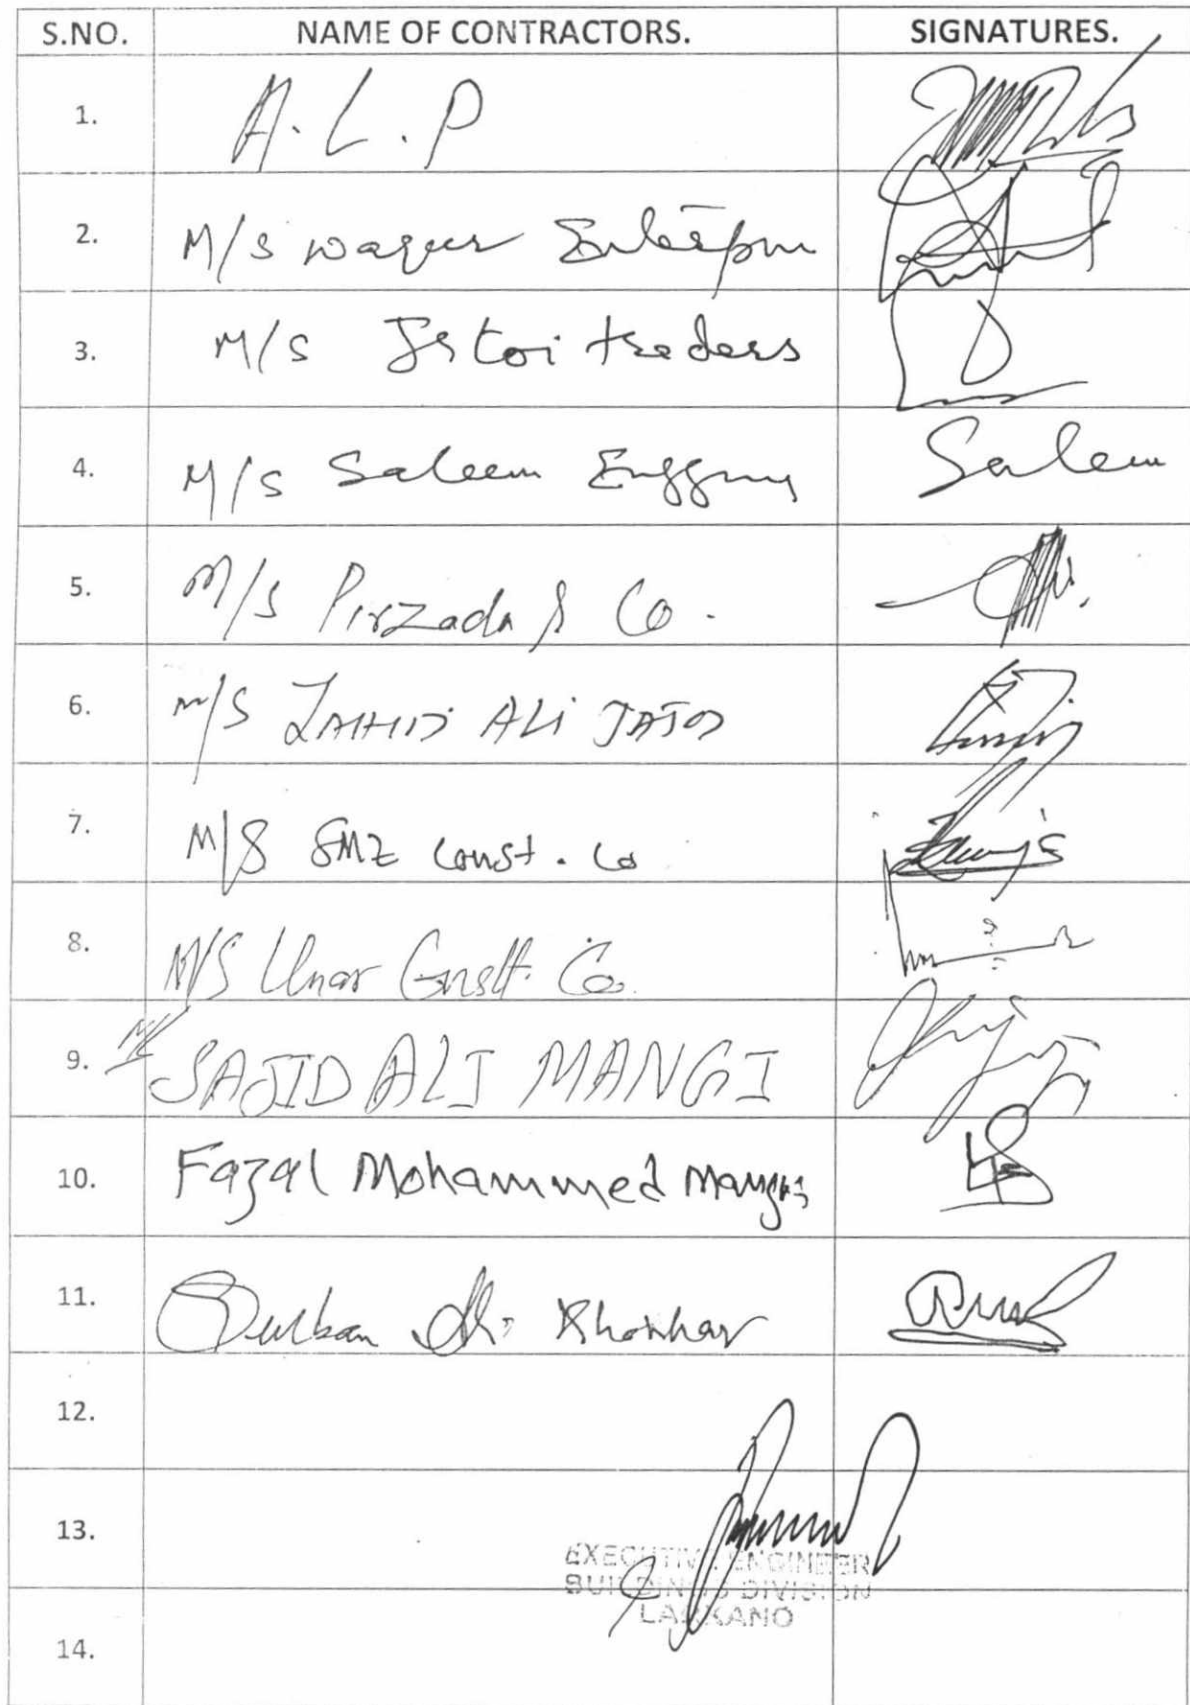 S.NO. NAME OF CONTRACTORS. SIGNATURES.
1. A.L.P
2. M/S Waqar
3. M/S traders
4. M/S Saleem Enggring Saleem
5. M/S Pirzada & Co.
6. M/S ZAHID ALI JATOI
7. M/S SMZ Const. Co
8. M/S Unar Constt. Co.
9. M/S SAJID ALI MANGI
10. Fazal Mohammed Mangi
11. Qurban Ali Khokhar
12.
13.
EXECUTIVE ENGINEER
BUILDINGS DIVISION
LARKANO
14.